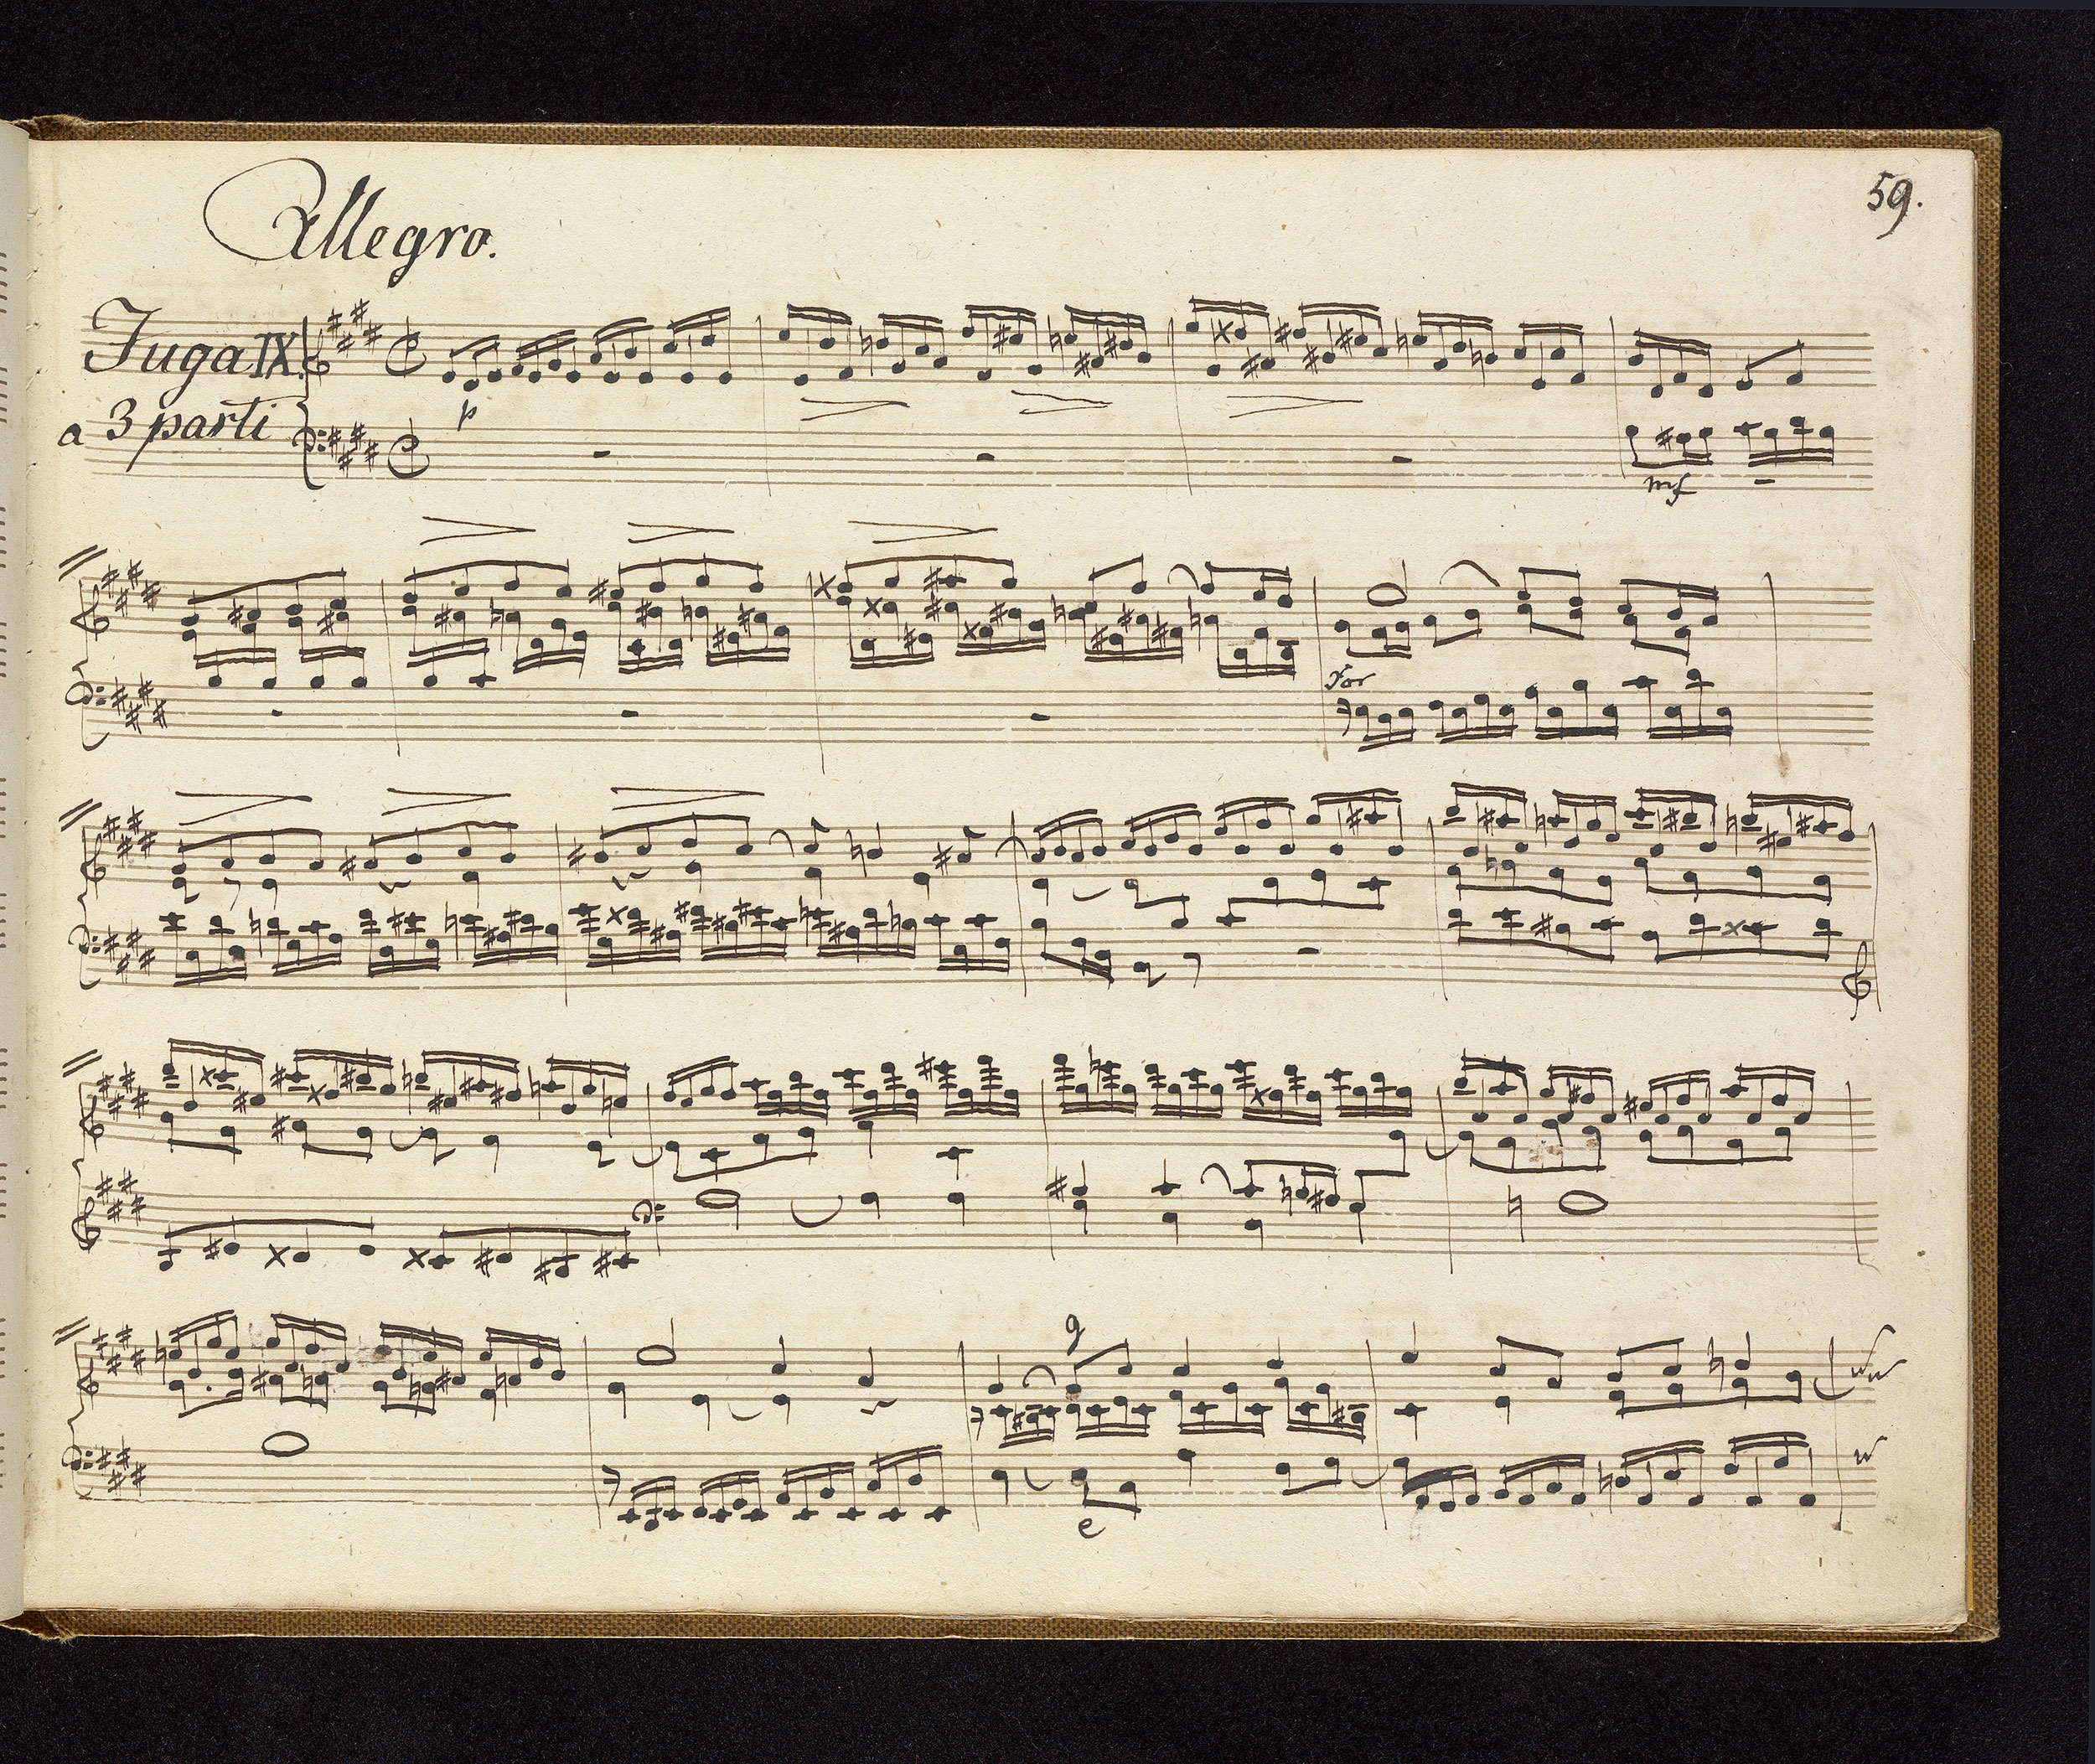 59.
Allegro.
Fuga IX.
a 3 parti
p
mf
for
g
e